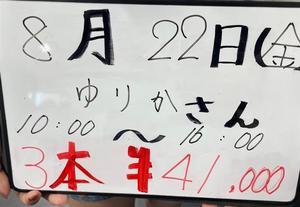 8月 22日(金
ゆりかさん
10:00 ～ 16:00
3本 ¥41,000